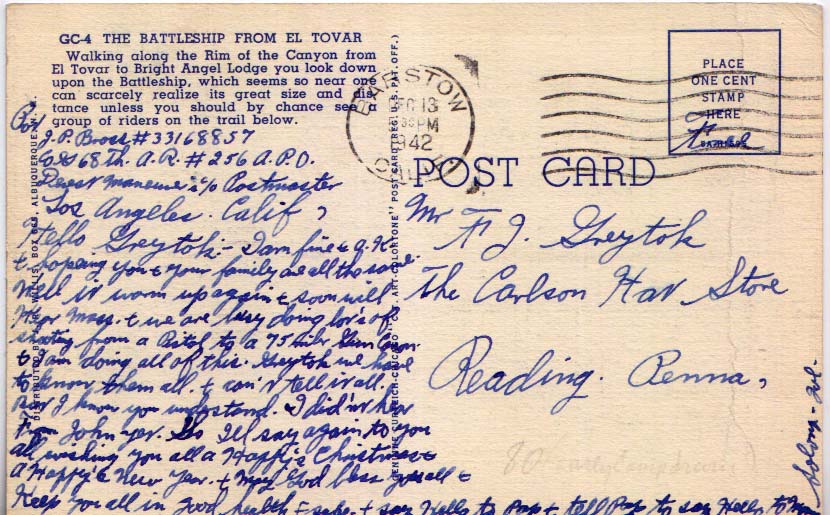 GC-4 THE BATTLESHIP FROM EL TOVAR
Walking along the Rim of the Canyon from
El Tovar to Bright Angel Lodge you look down
upon the Battleship, which seems so near one
can scarcely realize its great size and dis-
tance unless you should by chance see a
group of riders on the trail below.
J. P. Bross # 33168857
68th. A.R. # 256 A.P.O.
Desert Maneuver c/o Postmaster
Los Angeles. Calif,
Hello Greytok - I am fine & O.K.
& hopeing you & your family are all the same.
Well it warm up again & soon will
Hear Mass. & we are busy doing lot's of
shooting from a Pistol to a 75 milr Gun
& I am doing all of this. Greytok we have
to know them all. & can't tell it all.
But I know you understand. I did'nt hear
from John yet. So I'll say again to you
all wishing you all a Happy's Christmas &
a Happy's New Year. & May God bless you all &
Keep you all in good health & safe. & say Hello to Pop & tell Pop to say Hello to Mom
BARSTOW
DEC 13
PM
1942
CALIF.
PLACE
ONE CENT
STAMP
HERE
Free
POST CARD
Mr F J. Greytok
The Carlson Hat Store
Reading. Penna,